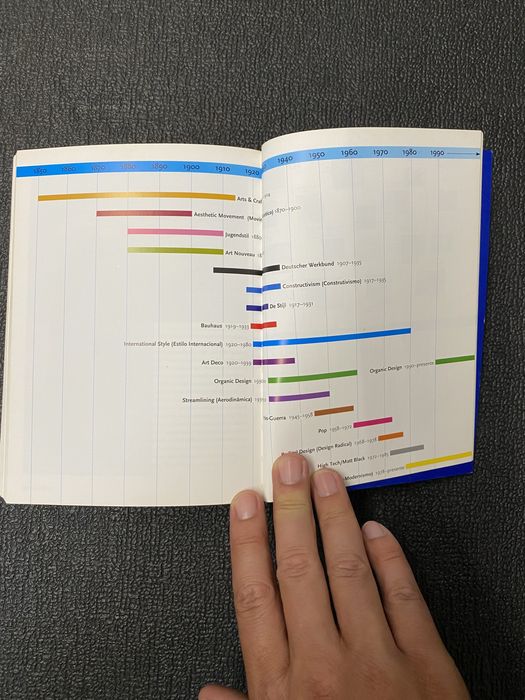 1850 1860 1870 1880 1890 1900 1910 1920
1940 1950 1960 1970 1980 1990
Arts & Craf
Aesthetic Movement (Movi
ético) 1870–1900
Jugendstil 1880
Art Nouveau 18
Deutscher Werkbund 1907–1935
Constructivism (Construtivismo) 1917–1935
De Stijl 1917–1931
Bauhaus 1919–1933
International Style (Estilo Internacional) 1920–1980
Art Deco 1920–1939
Organic Design 1990–presente
Organic Design 1930s
Streamlining (Aerodinâmica) 1930s
ós-Guerra 1945–1958
Pop 1958–1972
Design (Design Radical) 1968–1978
High Tech/Matt Black 1972–1985
Modernismo) 1978–presente